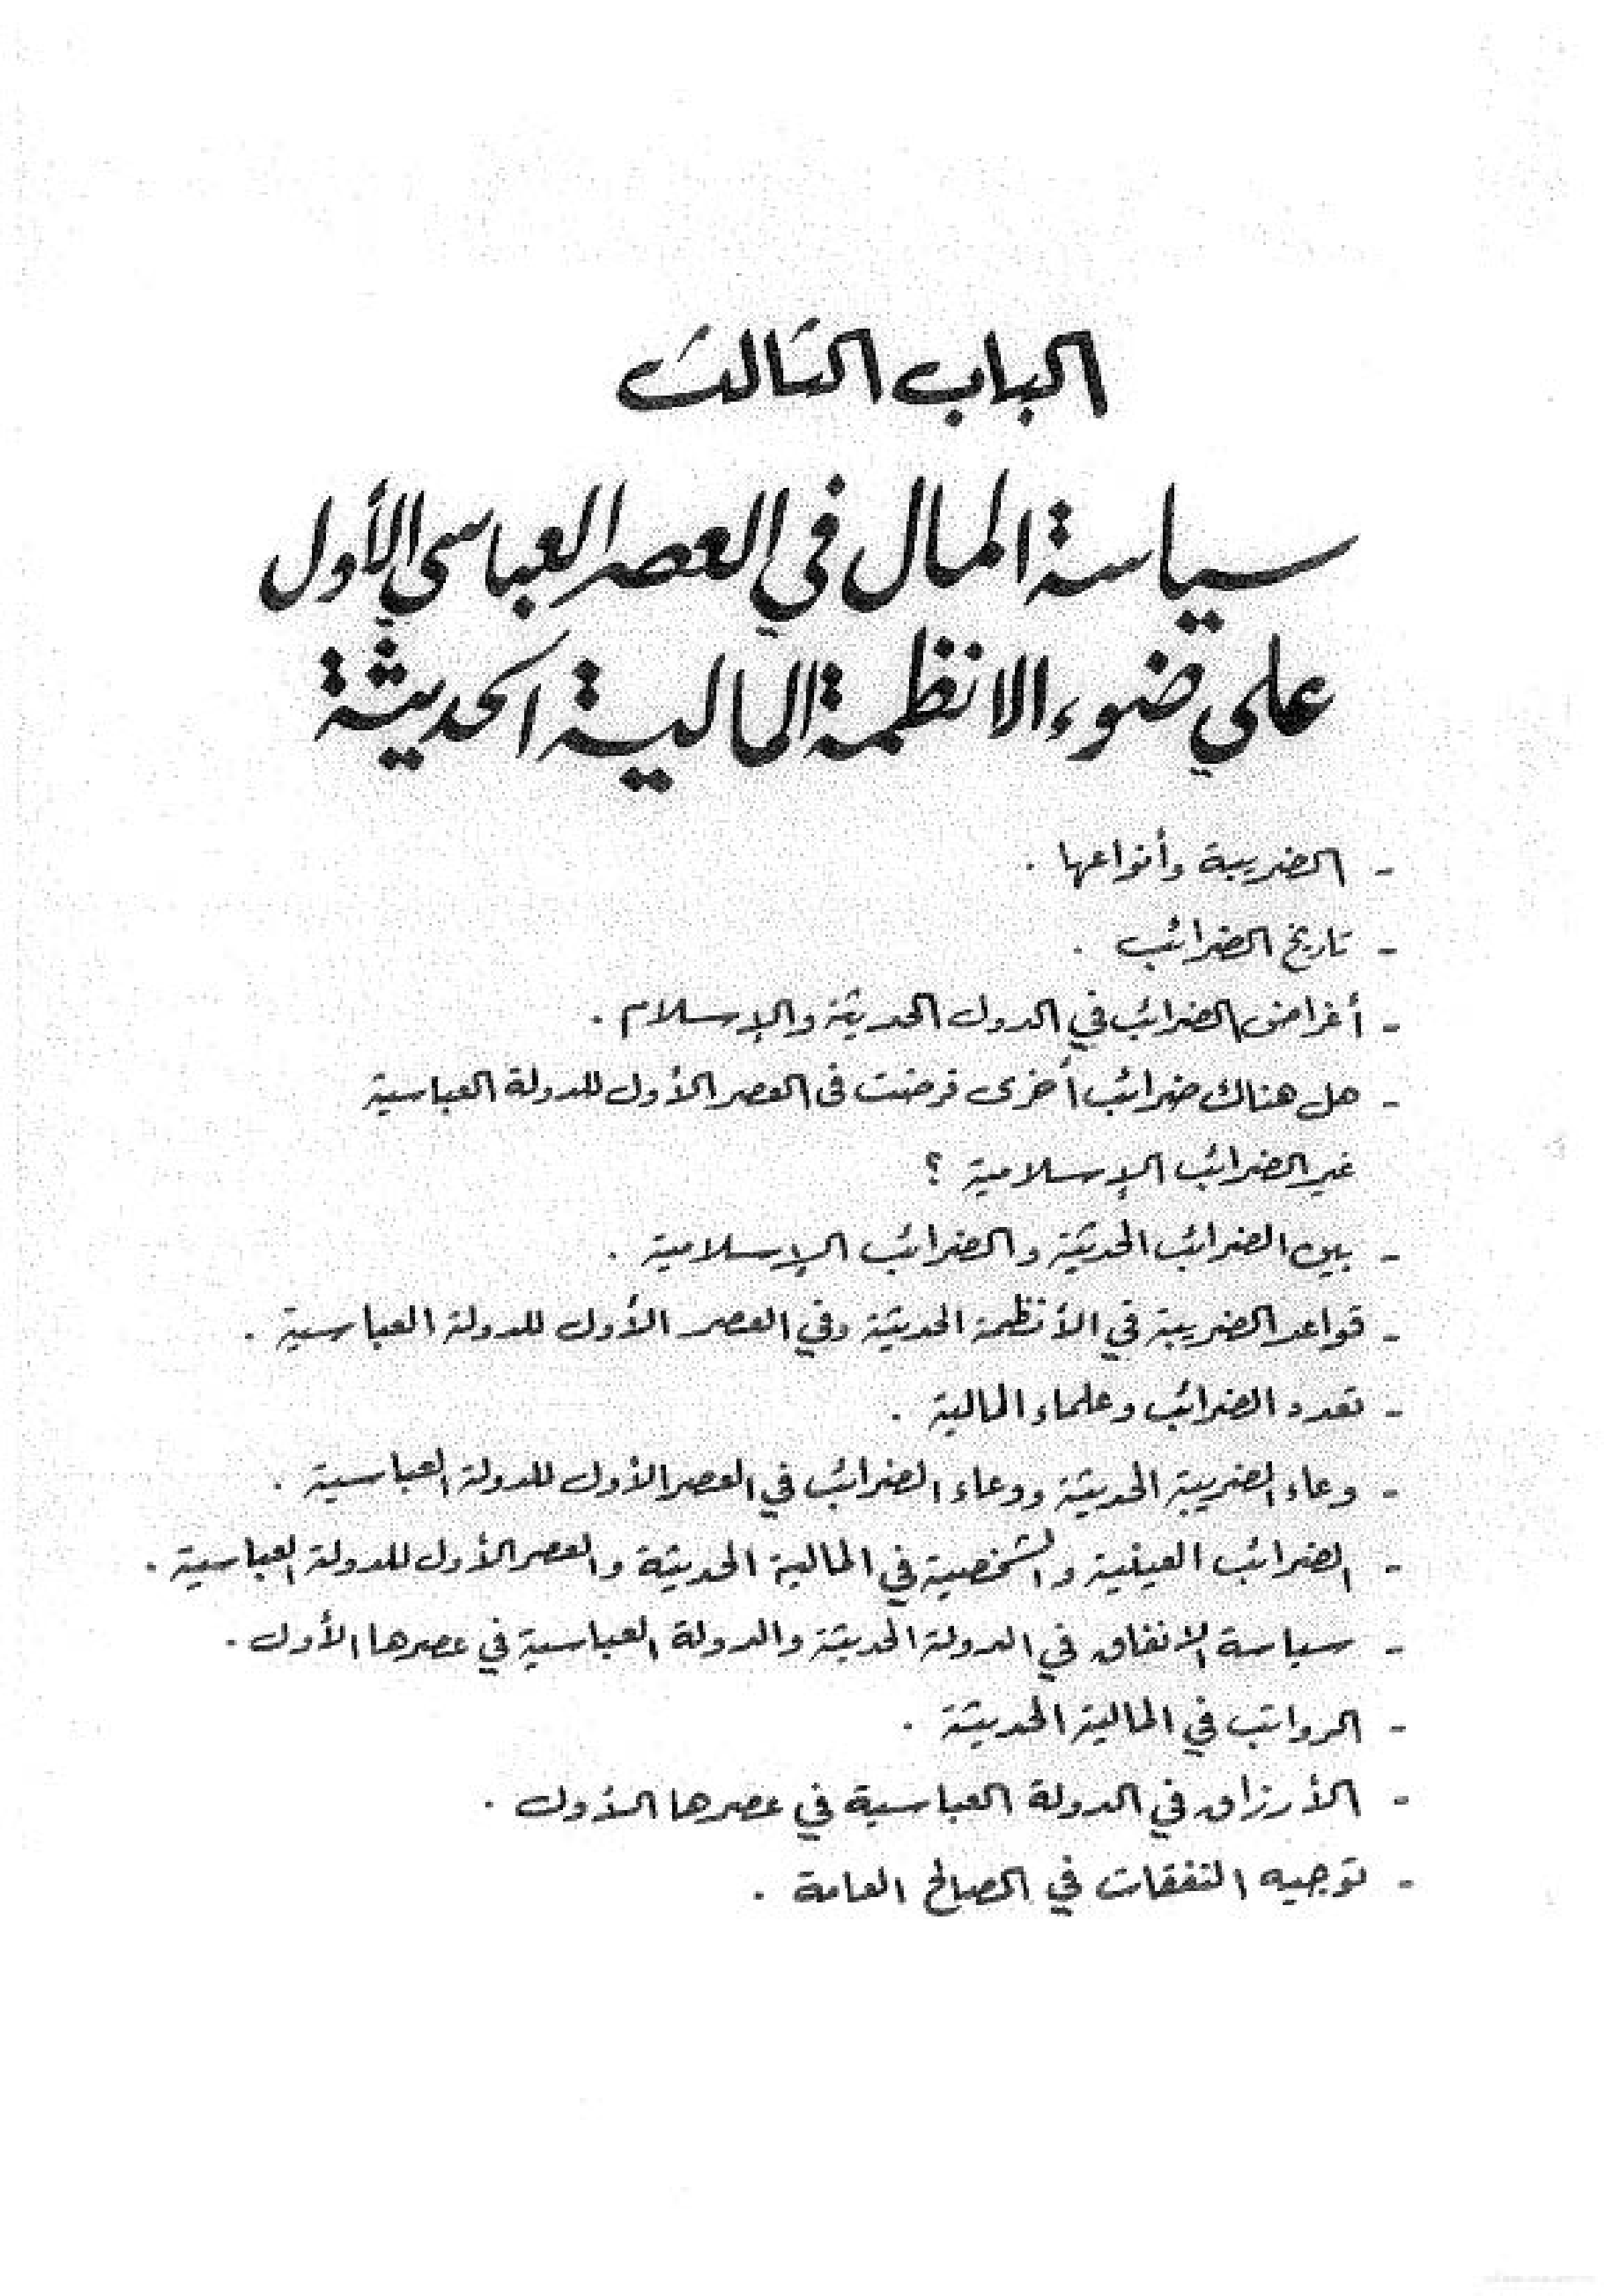 الباب الثالث
سياسة المال في العصر العباسي الأول
على ضوء الانظمة المالية الحديثة
- الضريبة وأنواعها .
- تاريخ الضرائب .
- أغراض الضرائب في الدول الحديثة والإسلام .
- هل هناك ضرائب أخرى فرضت فى العصر الأول للدولة العباسية
غير الضرائب الإسلامية ؟
- بين الضرائب الحديثة والضرائب الإسلامية .
- قواعد الضريبة في الأنظمة الحديثة وفي العصر الأول للدولة العباسية .
- تعدد الضرائب وعلماء المالية .
- وعاء الضريبة الحديثة ووعاء الضرائب في العصر الأول للدولة العباسية .
- الضرائب العينية والشخصية في المالية الحديثة والعصر الأول للدولة العباسية .
- سياسة الإنفاق في الدولة الحديثة والدولة العباسية في عصرها الأول .
- الرواتب في المالية الحديثة .
- الأرزاق في الدولة العباسية في عصرها الأول .
- توجيه النفقات في المصالح العامة .